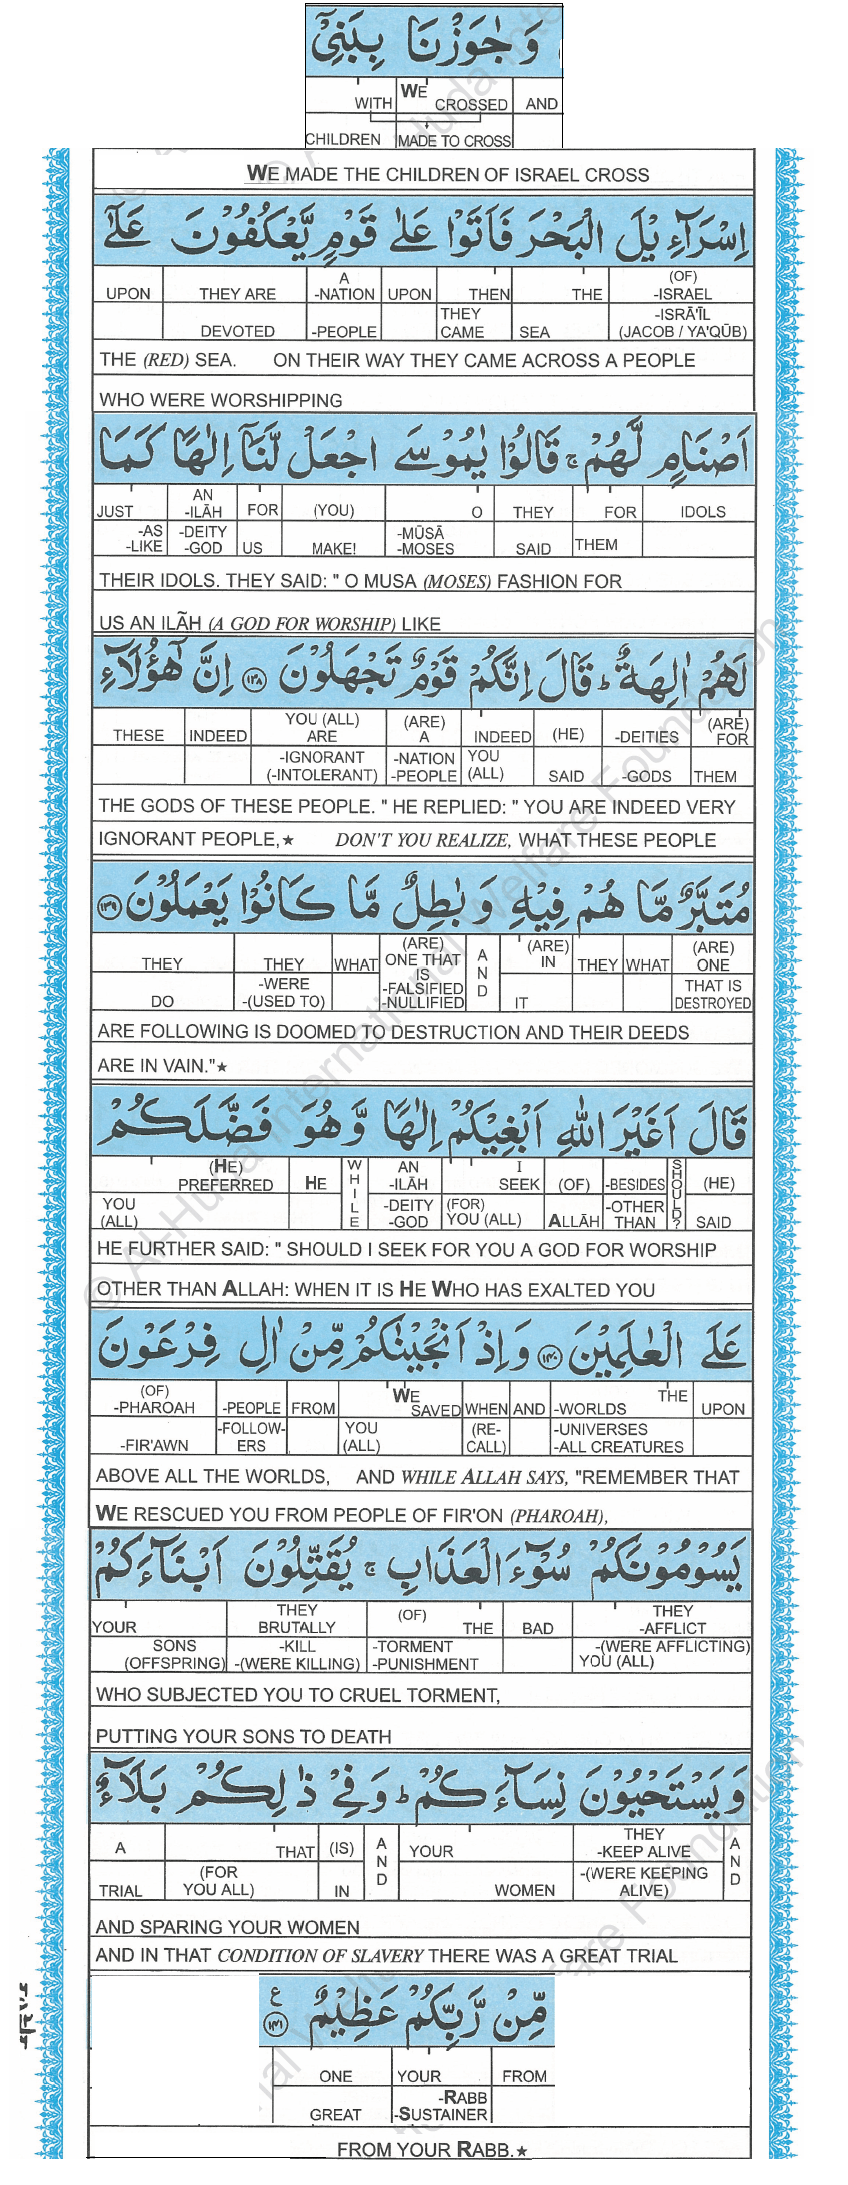 وَجٰوَزْنَا بِبَنِىْۤ
WITH WE CROSSED AND
CHILDREN MADE TO CROSS
WE MADE THE CHILDREN OF ISRAEL CROSS
اِسْرَآءِيْلَ الْبَحْرَ فَاَتَوْا عَلٰى قَوْمٍ يَّعْكُفُوْنَ عَلٰٓى
UPON THEY ARE A -NATION UPON THEN THE (OF) -ISRAEL
DEVOTED -PEOPLE THEY CAME SEA -ISRĀ'ĪL (JACOB / YA'QŪB)
THE (RED) SEA. ON THEIR WAY THEY CAME ACROSS A PEOPLE
WHO WERE WORSHIPPING
اَصْنَامٍ لَّهُمْ ۚ قَالُوْا يٰمُوْسَى اجْعَلْ لَّنَاۤ اِلٰهًا كَمَا
JUST AN -ILĀH FOR (YOU) O THEY FOR IDOLS
-AS -LIKE -DEITY -GOD US MAKE! -MŪSĀ -MOSES SAID THEM
THEIR IDOLS. THEY SAID: " O MUSA (MOSES) FASHION FOR
US AN ILÃH (A GOD FOR WORSHIP) LIKE
لَهُمْ اٰلِهَةٌ ؕ قَالَ اِنَّكُمْ قَوْمٌ تَجْهَلُوْنَ ۝۱۳۸ اِنَّ هٰٓؤُلَآءِ
THESE INDEED YOU (ALL) ARE (ARE) A INDEED (HE) -DEITIES (ARE) FOR
-IGNORANT (-INTOLERANT) -NATION -PEOPLE YOU (ALL) SAID -GODS THEM
THE GODS OF THESE PEOPLE. " HE REPLIED: " YOU ARE INDEED VERY
IGNORANT PEOPLE,★ DON'T YOU REALIZE, WHAT THESE PEOPLE
مُتَبَّرٌ مَّا هُمْ فِيْهِ وَبٰطِلٌ مَّا كَانُوْا يَعْمَلُوْنَ ۝۱۳۹
THEY THEY WHAT (ARE) ONE THAT IS AND (ARE) IN THEY WHAT (ARE) ONE
DO -WERE -(USED TO) -FALSIFIED -NULLIFIED IT THAT IS DESTROYED
ARE FOLLOWING IS DOOMED TO DESTRUCTION AND THEIR DEEDS
ARE IN VAIN."★
قَالَ اَغَيْرَ اللّٰهِ اَبْغِيْكُمْ اِلٰهًا وَّهُوَ فَضَّلَكُمْ
(HE) PREFERRED HE WHILE AN -ILĀH I SEEK (OF) -BESIDES SHOULD? (HE)
YOU (ALL) -DEITY -GOD (FOR) YOU (ALL) ALLĀH -OTHER THAN SAID
HE FURTHER SAID: " SHOULD I SEEK FOR YOU A GOD FOR WORSHIP
OTHER THAN ALLAH: WHEN IT IS HE WHO HAS EXALTED YOU
عَلَى الْعٰلَمِيْنَ ۝۱۴۰ وَاِذْ اَنْجَيْنٰكُمْ مِّنْ اٰلِ فِرْعَوْنَ
(OF) -PHAROAH -PEOPLE FROM WE SAVED WHEN AND THE -WORLDS UPON
-FIR'AWN -FOLLOW-ERS YOU (ALL) (RE-CALL) -UNIVERSES -ALL CREATURES
ABOVE ALL THE WORLDS, AND WHILE ALLAH SAYS, "REMEMBER THAT
WE RESCUED YOU FROM PEOPLE OF FIR'ON (PHAROAH),
يَسُوْمُوْنَكُمْ سُوْٓءَ الْعَذَابِ ۚ يُقَتِّلُوْنَ اَبْنَآءَكُمْ
YOUR THEY BRUTALLY (OF) THE BAD THEY -AFFLICT
SONS (OFFSPRING) -KILL -(WERE KILLING) -TORMENT -PUNISHMENT -(WERE AFFLICTING) YOU (ALL)
WHO SUBJECTED YOU TO CRUEL TORMENT,
PUTTING YOUR SONS TO DEATH
وَيَسْتَحْيُوْنَ نِسَآءَكُمْ ؕ وَفِىْ ذٰلِكُمْ بَلَآءٌ
A THAT (IS) AND YOUR THEY -KEEP ALIVE AND
TRIAL (FOR YOU ALL) IN WOMEN -(WERE KEEPING ALIVE)
AND SPARING YOUR WOMEN
AND IN THAT CONDITION OF SLAVERY THERE WAS A GREAT TRIAL
مِّنْ رَّبِّكُمْ عَظِيْمٌ ۝۱۴۱ ع
ONE YOUR FROM
GREAT -RABB -SUSTAINER
FROM YOUR RABB.★
© Al-Huda International Welfare Foundation